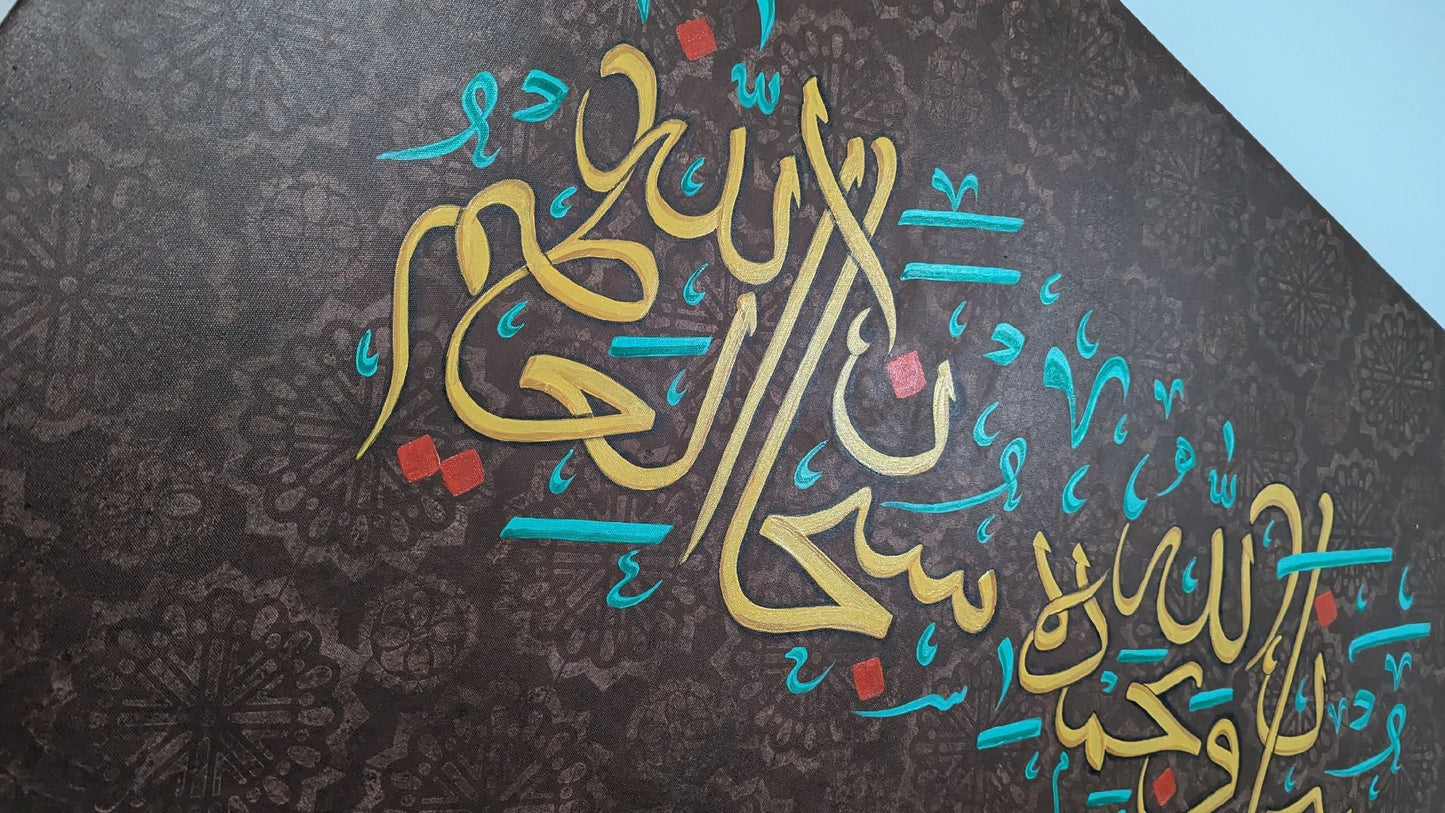 الله وبحمده
سبحان الله العظيم